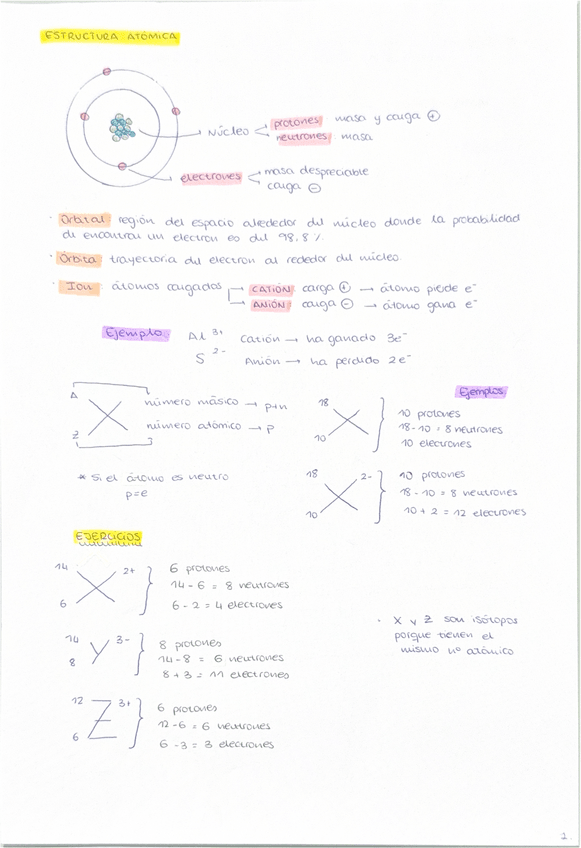 ESTRUCTURA ATÓMICA
Núcleo
protones masa y carga ⊕
neutrones masa
electrones
masa despreciable
carga ⊖
· Orbital región del espacio alrededor del núcleo donde la probabilidad
de encontrar un electron es del 98,8%.
· Órbita: trayectoria del electron al rededor del núcleo.
· Ion: átomos cargados
CATIÓN: carga ⊕ → átomo pierde e⁻
ANIÓN: carga ⊖ → átomo gana e⁻
Ejemplo: Al 3+ Catión → ha ganado 3e⁻
S 2- Anión → ha perdido 2e⁻
A X número másico → p+n
Z número atómico → p
* Si el átomo es neutro
p=e
Ejemplos
18 X 10
10 protones
18-10 = 8 neutrones
10 electrones
18 X 2- 10
10 protones
18-10 = 8 neutrones
10+2 = 12 electrones
EJERCICIOS
14 X 2+ 6
6 protones
14-6 = 8 neutrones
6-2 = 4 electrones
14 Y 3- 8
8 protones
14-8 = 6 neutrones
8+3 = 11 electrones
12 Z 3+ 6
6 protones
12-6 = 6 neutrones
6-3 = 3 electrones
· X y Z son isótopos
porque tienen el
mismo nº atómico
1.